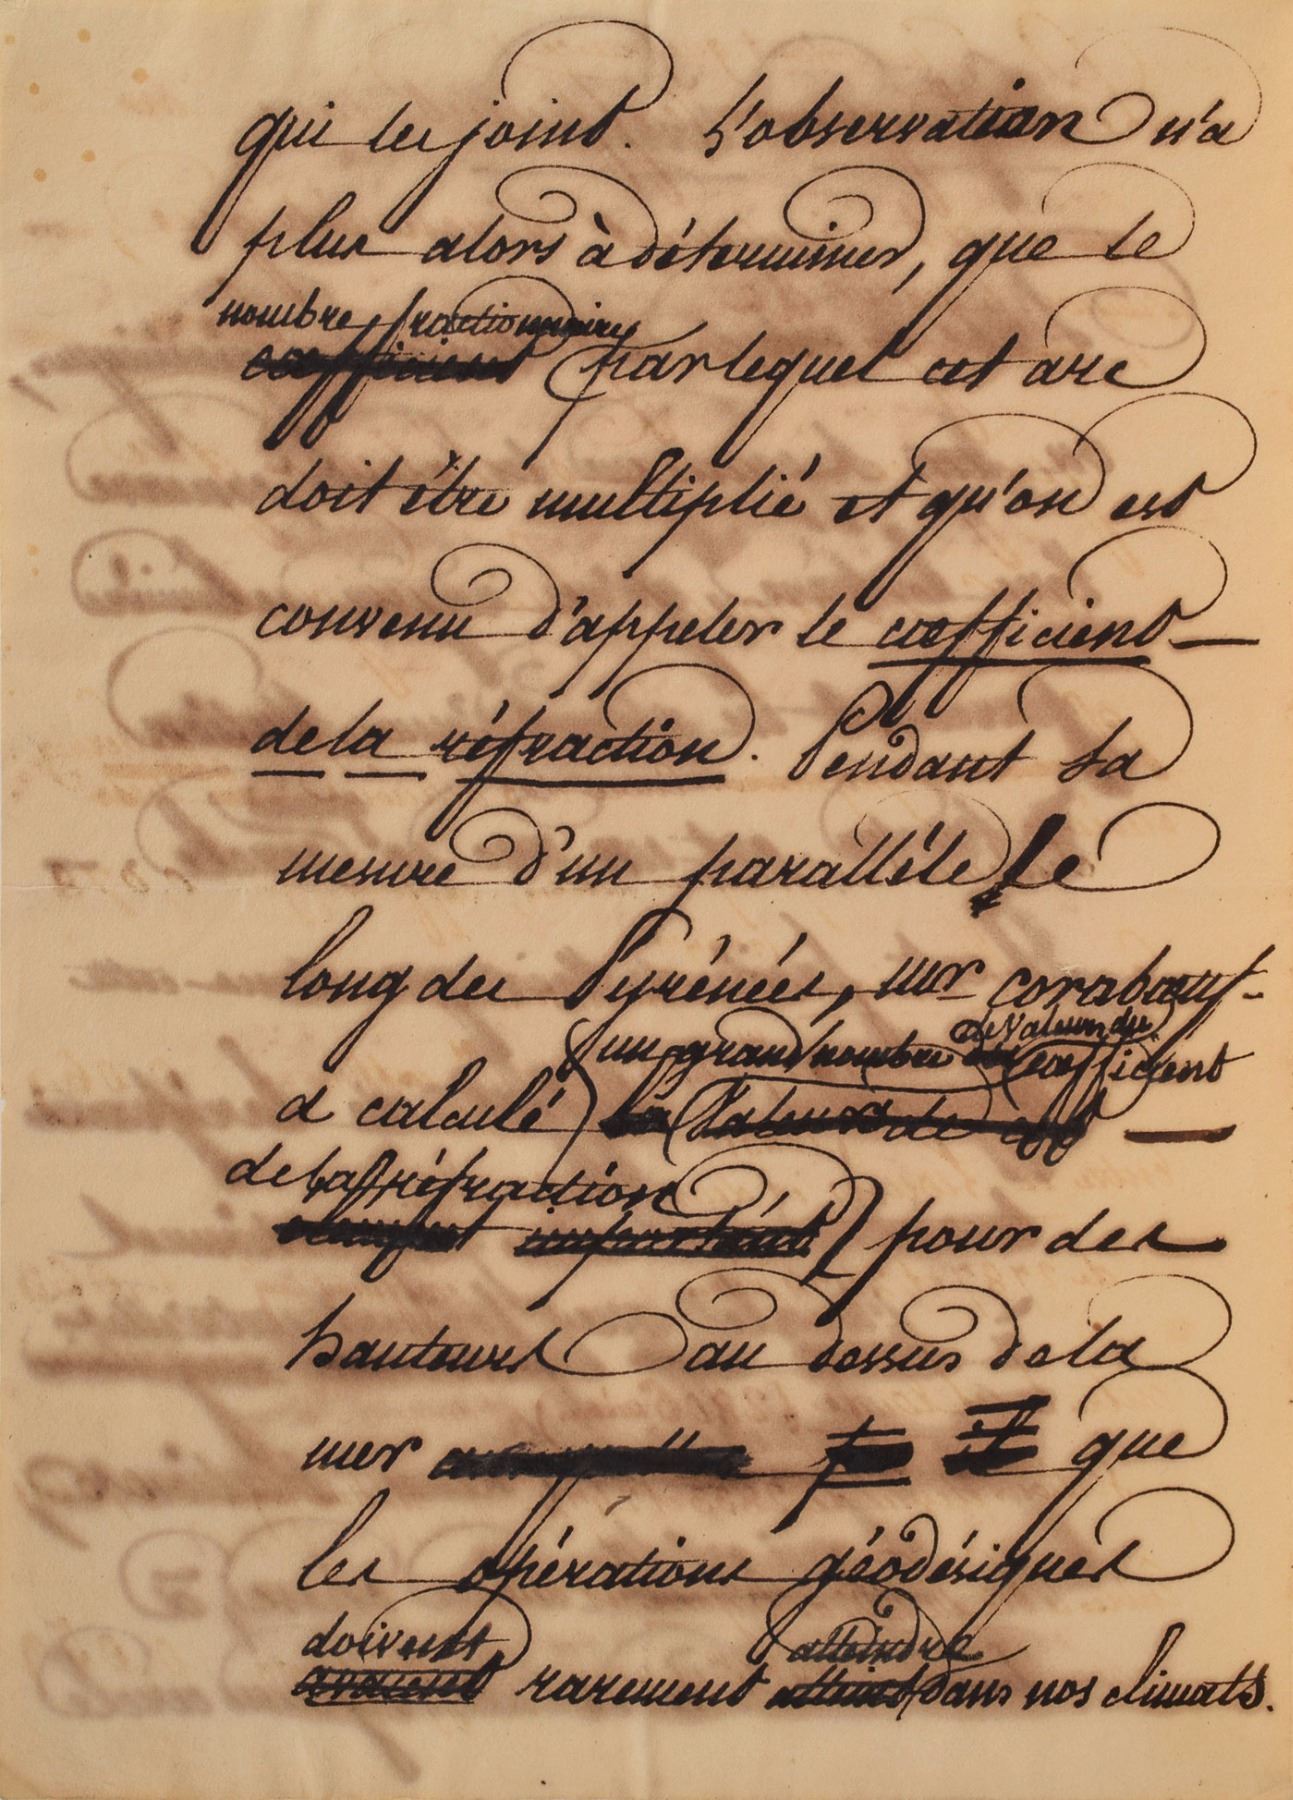 qui les joint. L'observation n'a
plus alors à déterminer, que le
nombre fractionnaire
coefficient par lequel cet arc
doit être multiplié et qu'on est
convenu d'appeler le coefficient
de la réfraction. Pendant sa
mesure d'un parallèle le
long des Pyrénées, mr corabœuf
un grand nombre de valeurs du coefficient
a calculé la valeur de cet
de la réfraction
élément important pour des
hauteurs au dessus de la
mer que
les opérations géodésiques
doivent atteindre
avaient rarement atteint dans nos climats.